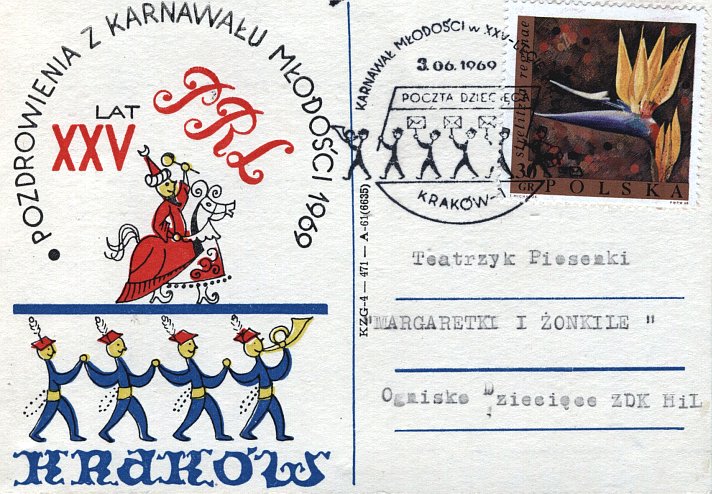 • POZDROWIENIA Z KARNAWAŁU MŁODOŚCI 1969
XXV LAT
PRL
KRAKÓW
KZG-4 — 471 — A-61(6635)
KARNAWAŁ MŁODOŚCI w XXV-LECI
3.06.1969
POCZTA DZIECIĘCA
KRAKÓW-1
strelitzia reginae
30 GR
POLSKA
Teatrzyk Piosenki
"MARGARETKI I ŻONKILE "
Ognisko Dziecięce ZDK HiL